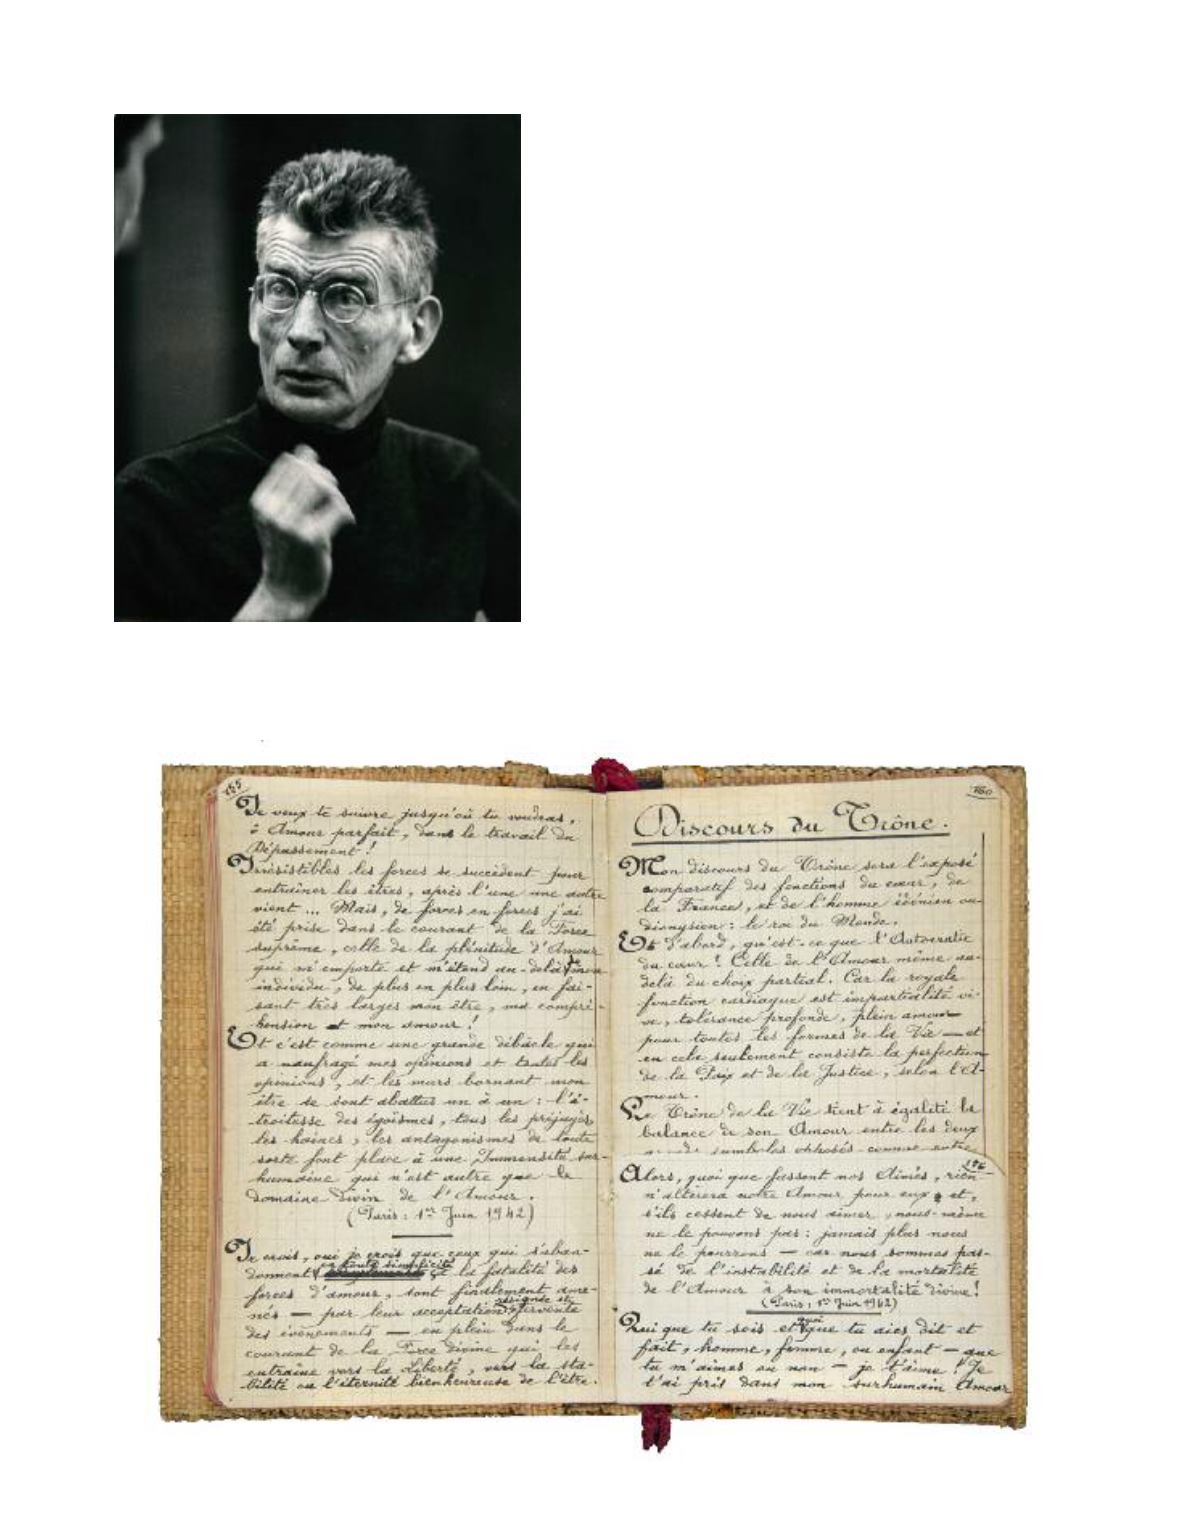 155
Je veux te suivre jusqu'où tu voudras,
ô Amour parfait, dans le travail du
Dépassement !
Irrésistibles les forces se succèdent pour
entraîner les êtres, après l'une une autre
vient ... Mais, de forces en forces j'ai
été prise dans le courant de la Force
suprême, celle de la plénitude d'Amour
qui m'emporte et m'étend au-delà de mon
individu, de plus en plus loin, en fai-
sant très larges mon être, ma compré-
hension et mon amour !
Et c'est comme une grande débâcle qui
a naufragé mes opinions et toutes les
opinions, et les murs bornant mon
être se sont abattus un à un : l'é-
troitesse des égoïsmes, tous les préjugés,
les haines, les antagonismes de toute
sorte font place à une Immensité sur-
humaine qui n'est autre que le
domaine divin de l'Amour.
(Paris : 1er Juin 1942)
Je crois, oui je crois que ceux qui s'aban-
donnent en toute simplicité à la fatalité des
forces d'amour, sont finalement ame-
nés — par leur acceptation résignée et fervente
des événements — en plein dans le
courant de la Force divine qui les
entraîne vers la Liberté, vers la sta-
bilité ou l'éternité bienheureuse de l'être.
160
Discours du Trône.
Mon discours du Trône sera l'exposé
comparatif des fonctions du cœur, de
la France, et de l'homme ou
dionysien : le roi du Monde.
Et d'abord, qu'est-ce que l'Autocratie
du cœur ! Celle de l'Amour même au-
delà du choix partial. Car la royale
fonction cardiaque est impartialité vi-
ve, tolérance profonde, plein amour
pour toutes les formes de la Vie — et
en cela seulement consiste la perfection
de la Paix et de la Justice, selon l'A-
mour.
Le Trône de la Vie tient à égalité la
balance de son Amour entre les deux
symboles opposés comme entre
Alors, quoi que fassent nos Aimés, rien
n'altérera notre Amour pour eux et,
s'ils cessent de nous aimer, nous-même
ne le pouvons pas : jamais plus nous
ne le pourrons — car nous sommes pas-
sé de l'instabilité et de la mortalité
de l'Amour à son immortalité divine !
(Paris, 1er Juin 1942)
Qui que tu sois et quoi que tu aies dit et
fait, homme, femme, ou enfant — que
tu m'aimes ou non — je t'aime ! Je
t'ai pris dans mon surhumain Amour